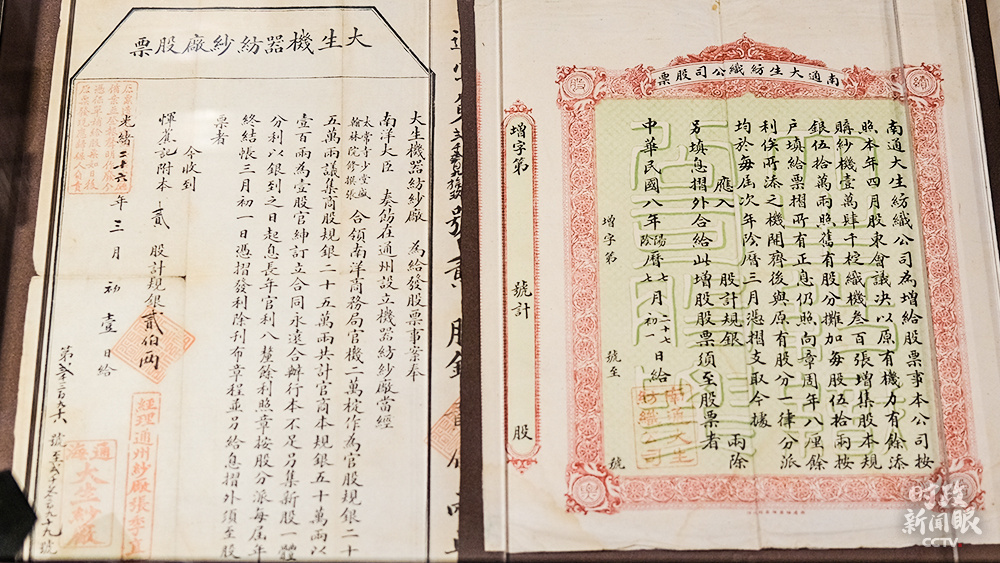 大生機器紡紗廠股票
大生機器紡紗廠 為給發股票事案奉
南洋大臣 奏飭在通州設立機器紡紗廠當經
太常寺堂盛
翰林院修撰張
合領南洋商務局官機二萬梃作為官股規銀二十
五萬兩議集商股規銀二十五萬兩共計官商本規銀五十萬兩以
壹百兩為壹股官紳訂立合同永遠合辦行本不足另集新股一體
分利以銀到之日起息長年官利八釐餘利照章按股分派每屆年
終結帳三月初一日憑摺發利除刊布章程並另給息摺外須至股
票者
今收到
惲莬記附本 貳 股計規銀貳伯兩
光緒二十六年三月初壹日給
經理通州紗廠張季直
通海
大生紗廠
南通大生紡織公司股票
南通大生紡織公司為增給股票事本公司按
照本年四月股東會議決以原有機力有餘添
購紗機壹萬肆千梃織機叁百張增集股本規
銀伍拾萬兩照舊有股分攤加每股伍拾兩按
户填給票摺所有正息仍照向章周年八厘餘
利俟所添之機開齊後與原有股分一律分派
均於每屆次年陰曆三月憑摺支取今據
應入 股計規銀 兩除
另填息摺外合給此增股票須至股票者
中華民國八年陽陰曆七月二十七初一日給
增字第 號至 號
南通大生
紡織公司
增字第 號計 股
時政
新聞眼
CCTV